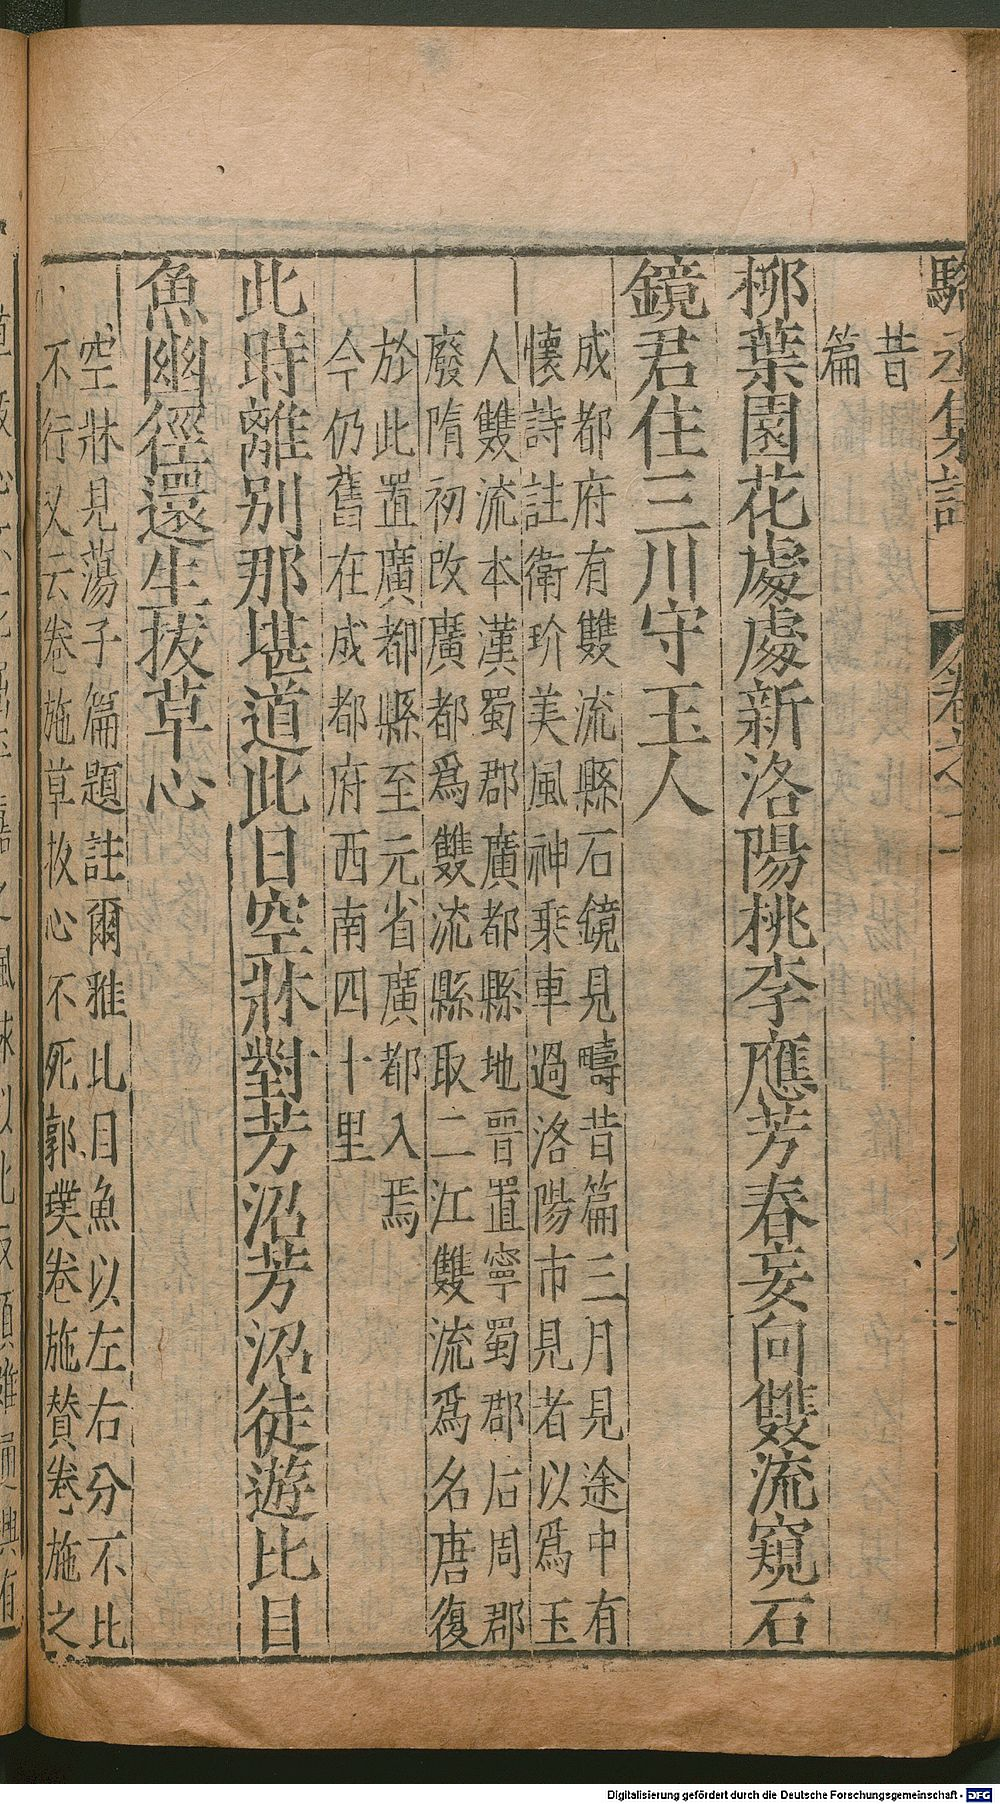 昔
篇
柳葉園花處處新洛陽桃李應芳春妄向雙流窺石
鏡君住三川守玉人
成都府有雙流縣石鏡見疇昔篇三月見途中有
懷詩註衛玠美風神乗車過洛陽市見者以爲玉
人雙流本漢蜀郡廣都縣地晉置寧蜀郡后周郡
廢隋初改廣都爲雙流縣取二江雙流爲名唐復
於此置廣都縣至元省廣都入焉
今仍舊在成都府西南四十里
此時離别那堪道此日空牀對芳沼芳沼徒遊比目
魚幽徑還生拔草心
空牀見蕩子篇題註爾雅比目魚以左右分不比
不行又云卷施草拔心不死郭璞卷施賛卷施之
Digitalisierung gefördert durch die Deutsche Forschungsgemeinschaft - DFG